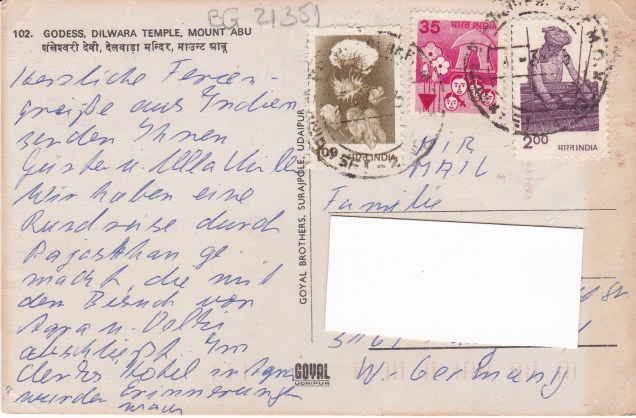 BG 21351
102. GODESS, DILWARA TEMPLE, MOUNT ABU
शंखेश्वरी देवी, देलवाड़ा मन्दिर, माउन्ट आबू
Herzliche Ferien-
grüße aus Indien
senden Ihnen
Günter u. Ulla
Wir haben eine
Rundreise durch
Rajasthan ge
macht, die mit
dem Besuch von
Agra u. Delhi
abschließt. Im
Hotel in Agra
wurden Erinnerungen
wach
GOYAL BROTHERS, SURAJPOLE, UDAIPUR
GOYAL
UDAIPUR
1.00
भारत INDIA
35
भारत INDIA
2.00
भारत INDIA
AIR
MAIL
Familie
W. Germany